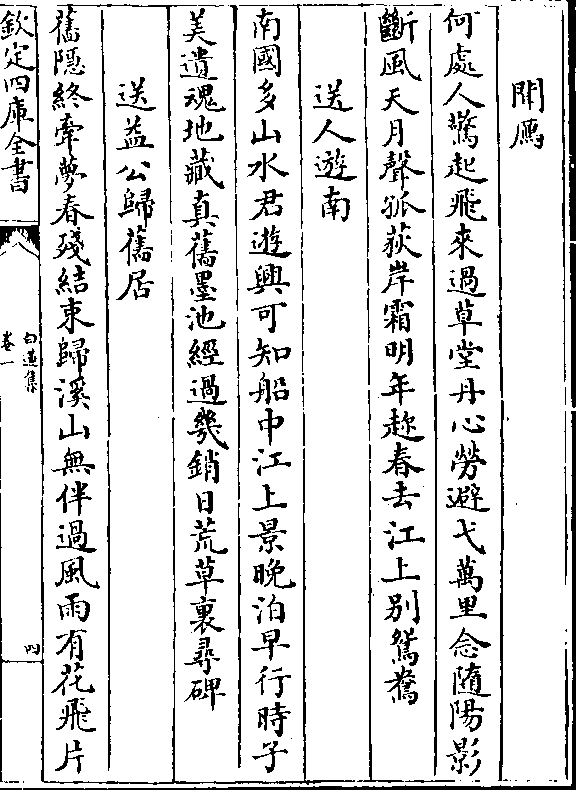 聞鴈
何處人驚起飛來過草堂丹心勞避弋萬里念隨陽影
斷風天月聲孤荻岸霜明年趂春去江上别鴛鴦
送人遊南
南國多山水君遊興可知船中江上景晚泊早行時子
美遺魂地藏真舊墨池經過幾銷日荒草裏尋碑
送益公歸舊居
舊隱終牽夢春殘結束歸溪山無伴過風雨有花飛片
欽定四庫全書
白蓮集
卷一
四